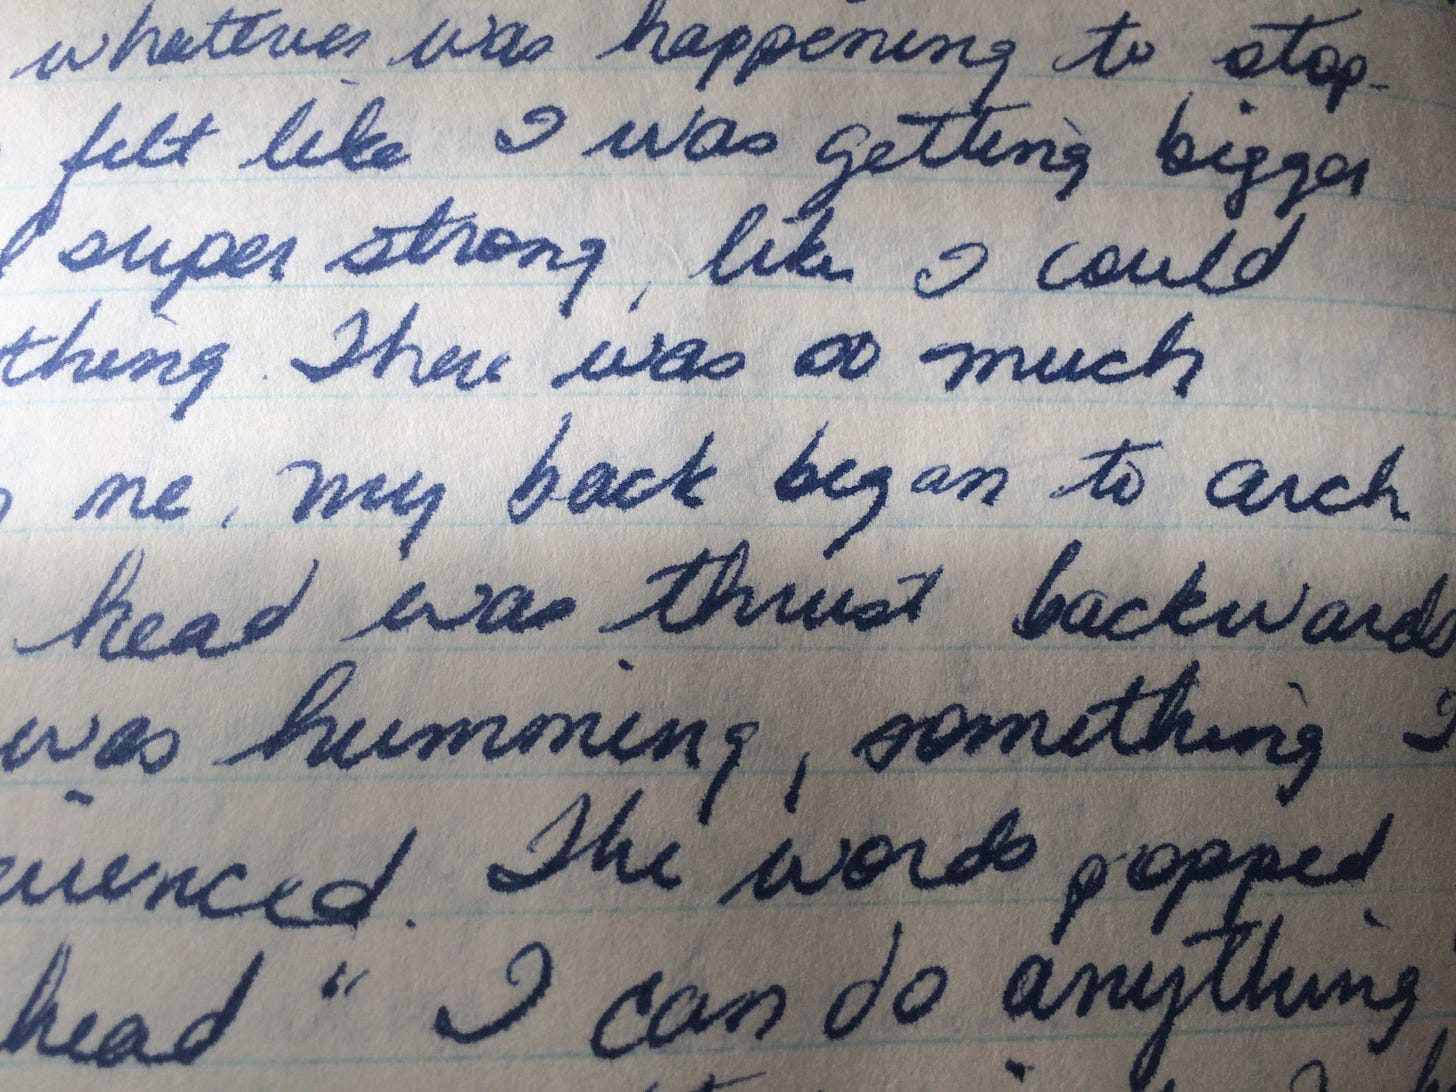 whatever was happening to stop.
felt like I was getting bigger
super strong, like I could
thing. There was so much
me, my back began to arch
head was thrust backwards
was humming, something I
ienced. The words popped
head " I can do anything